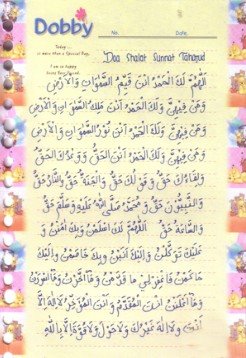 Dobby
No. Date.
Today
is more than a Special Day.
I am so happy
being your friend.
Doa Shalat Sunnat Tahajud
اَللّٰهُمَّ لَكَ الْحَمْدُ اَنْتَ قَيِّمُ السَّمٰوَاتِ وَالْاَرْضِ
وَمَنْ فِيْهِنَّ وَلَكَ الْحَمْدُ اَنْتَ مَلِكُ السَّمٰوَاتِ وَالْاَرْضِ
وَمَنْ فِيْهِنَّ وَلَكَ الْحَمْدُ اَنْتَ نُوْرُ السَّمٰوَاتِ وَالْاَرْضِ
وَمَنْ فِيْهِنَّ وَلَكَ الْحَمْدُ اَنْتَ الْحَقُّ وَوَعْدُكَ الْحَقُّ
وَلِقَاءُكَ حَقٌّ وَقَوْلُكَ حَقٌّ وَالْجَنَّةُ حَقٌّ وَالنَّارُ حَقٌّ
وَالنَّبِيُّوْنَ حَقٌّ وَمُحَمَّدٌ صَلَّى اللهُ عَلَيْهِ وَسَلَّمَ حَقٌّ
وَالسَّاعَةُ حَقٌّ اَللّٰهُمَّ لَكَ اَسْلَمْتُ وَبِكَ اٰمَنْتُ وَ
عَلَيْكَ تَوَكَّلْتُ وَاِلَيْكَ اَنَبْتُ وَبِكَ خَاصَمْتُ وَاِلَيْكَ
حَاكَمْتُ فَاغْفِرْلِيْ مَا قَدَّمْتُ وَمَا اَخَّرْتُ وَمَا اَسْرَرْتُ
وَمَا اَعْلَنْتُ اَنْتَ الْمُقَدِّمُ وَاَنْتَ الْمُؤَخِّرُ لَااِلٰهَ اِلَّا
اَنْتَ وَلَااِلٰهَ غَيْرُكَ وَلَاحَوْلَ وَلَاقُوَّةَ اِلَّا بِاللهِ